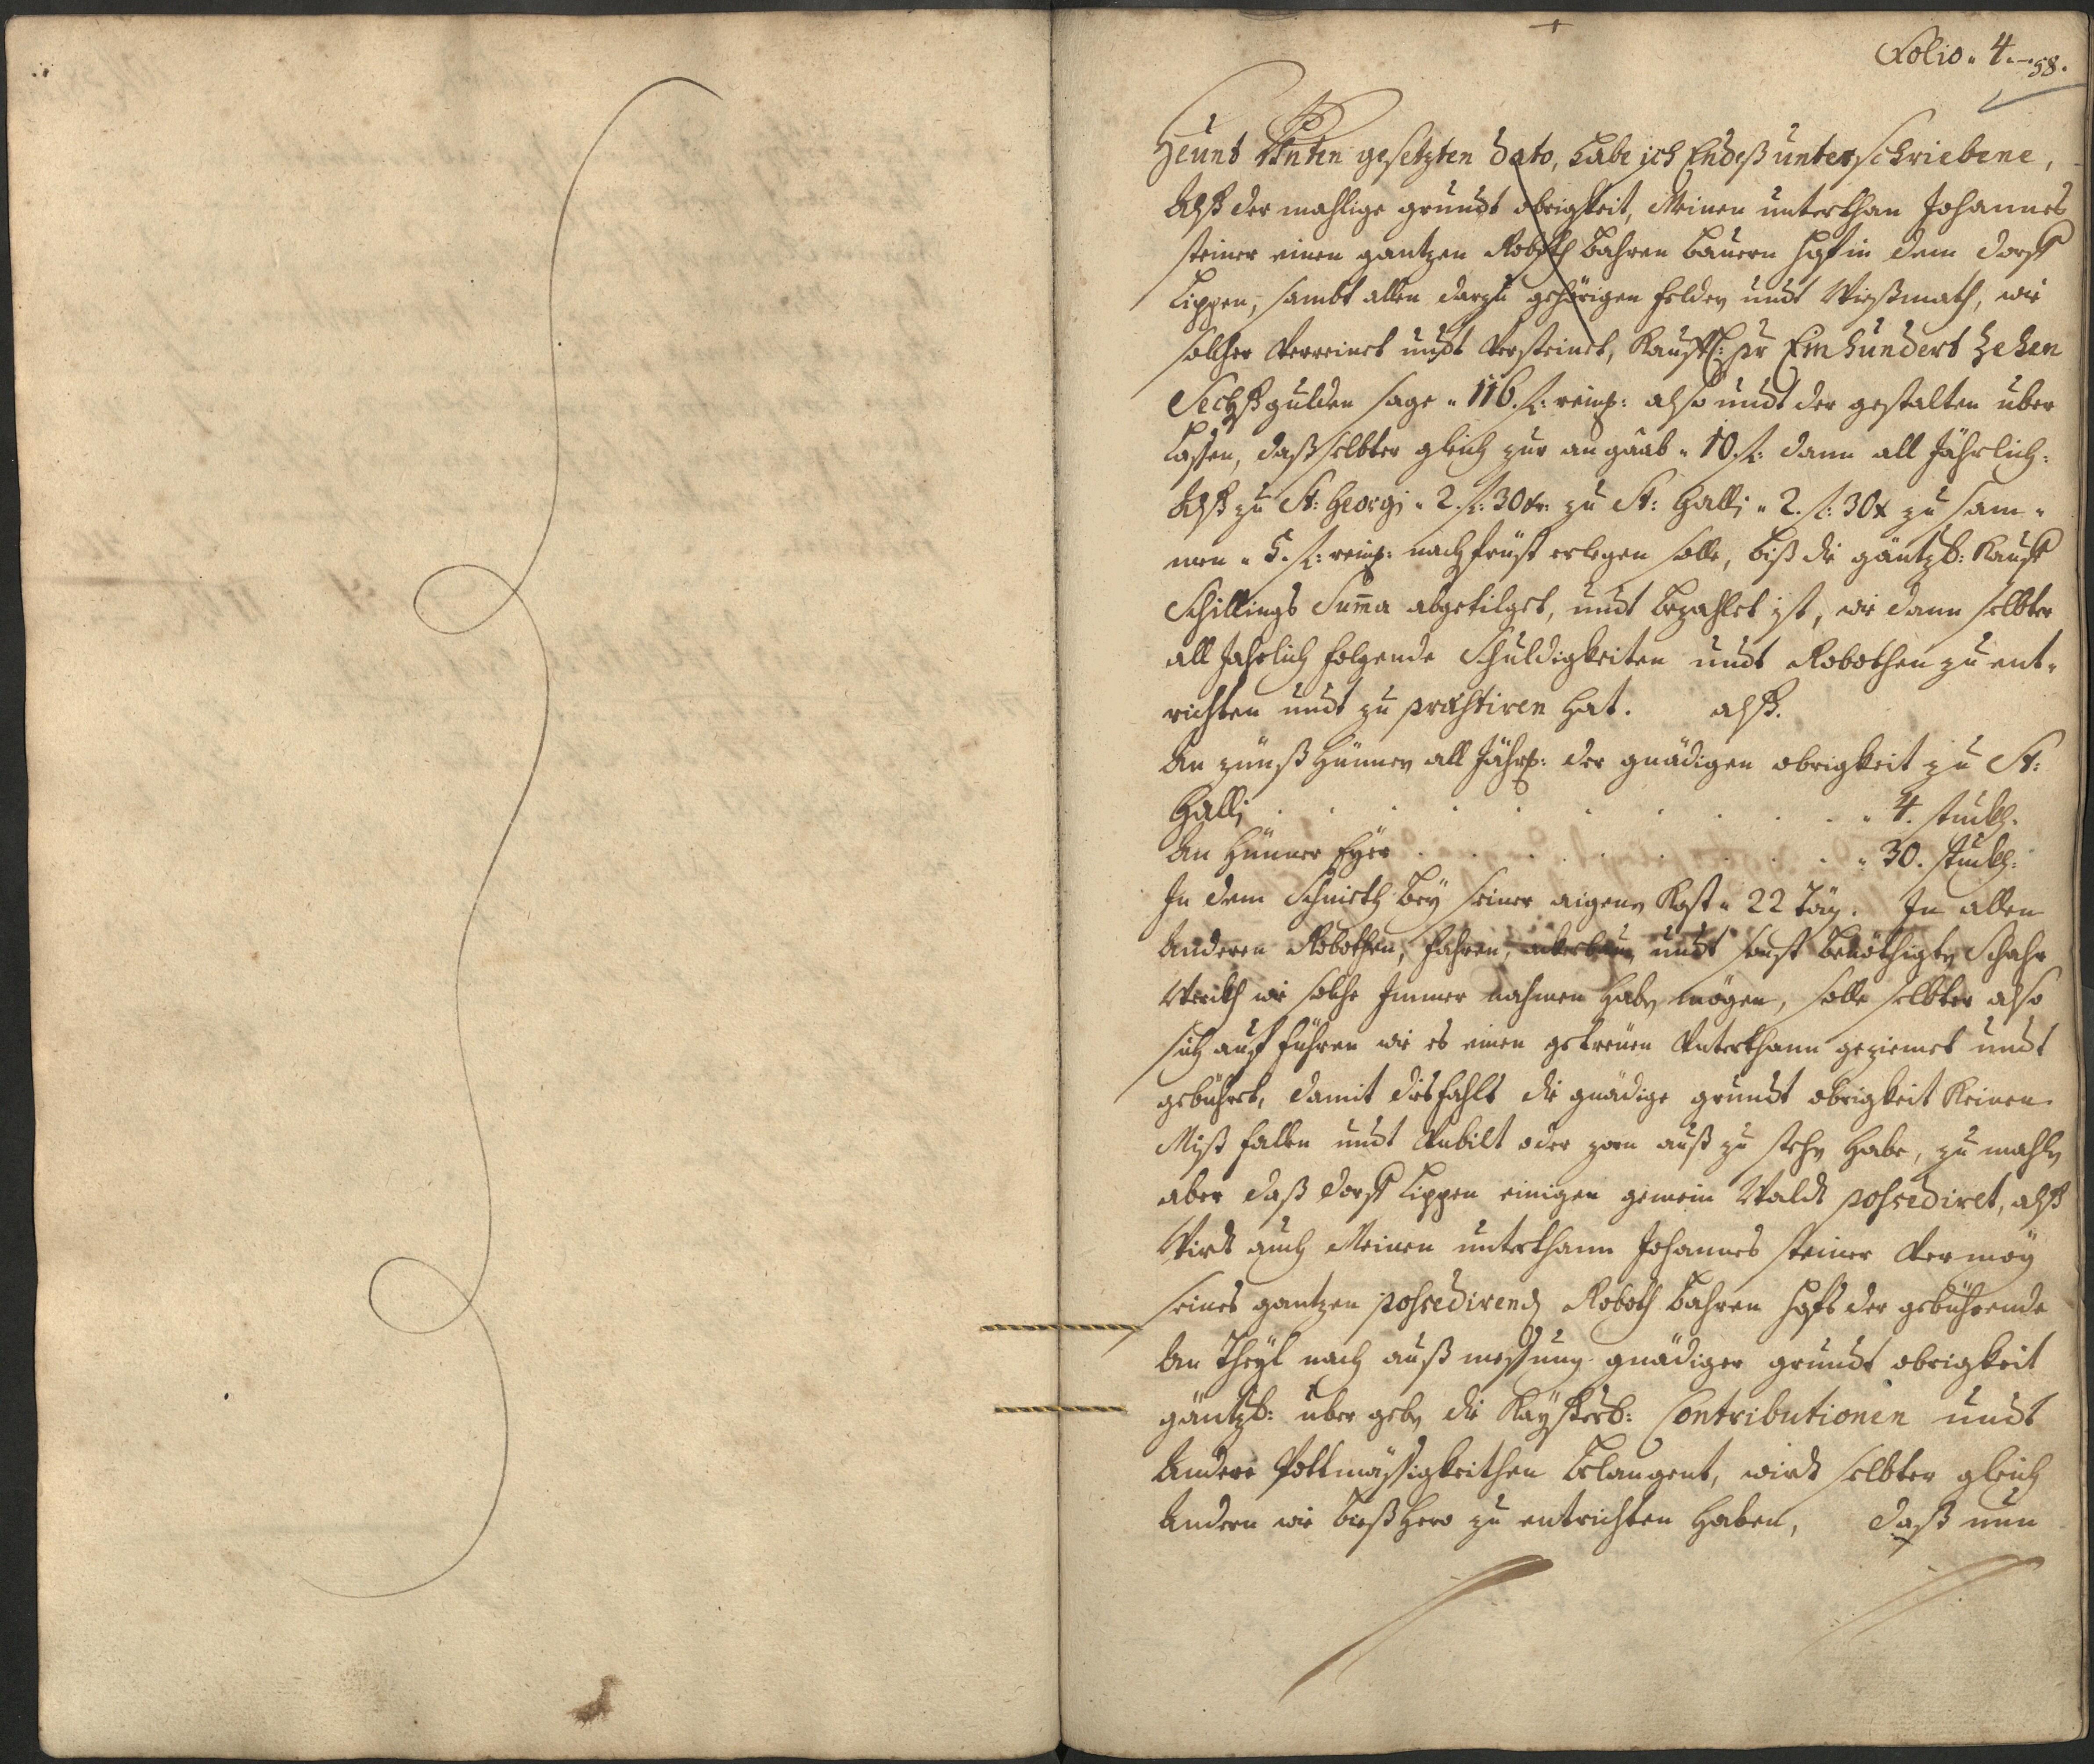 Folio. 4. 58.
Heünt Unten gesetzten dato, habe ich Endeß unterschriebene,
Alß der mahlige grundt obrigkeit, Meinen unterthan Johannes
steiner einen gantzen Roboth bahren bauern Hof in dem dorff
Lippen, sambt allen darzu gehörigen felder undt Wießmath, wie
solcher Verreinet undt Versteinet, Kaufl: pr Ein hundert Zehen
Sechß gulden sage 116. f: reinß: also undt der gestalten über
Lassen, daß selbter gleich zur angaab 10. f: dann all Jährlich:
Alß zu St: Georgi 2. f: 30 xr: zu St: Galli 2. f: 30 x zu sam-
men 5. f: reinß: nachfrüst erlegen solle, biß die gäntzl: Kauff
Schillings Suma abgetilget, undt bezahlet ist, wie dann selbter
all Jahrlich folgende Schuldigkeiten undt Robothen zu ent-
richten undt zu præstiren hat. alß.
An zünß Hünner all Jährl: der gnädigen obrigkeit zu St:
Galli . . . . . . . . . . 4. stuckh.
An Hünner Eyer . . . . . . . . 30. stuckh:
In dem Schnieth bey seiner aigene Kost 22 Täg. In allen
Anderen Robothen, fahren, undt sonst benöthigte Schahr
Werckh wie solche Immer nahmen habe mögen, solle selbter also
sich auf führen wie es einen getreuen Unterthann geziemet undt
gebühret, damit diesfahls die gnädige grundt obrigkeit Keinen
Miß fallen undt Unbilt oder zorn auß zu stehe habe, zu mahle
aber daß dorff Lippen einigen gemein Waldt possediret, alß
Wirdt auch Meinen unterthann Johannes steiner Vermög
seines gantzen possedirende Roboth bahren Hofs der gebührende
An Theyl nach außmessung gnädiger grundt obrigkeit
gäntzl: über gebe die Kayßerl: Contributionen undt
Andere Pottmässigkeithen belangent, wirdt selbter gleich
Andern wie bießhero zu entrichten haben, daß nun